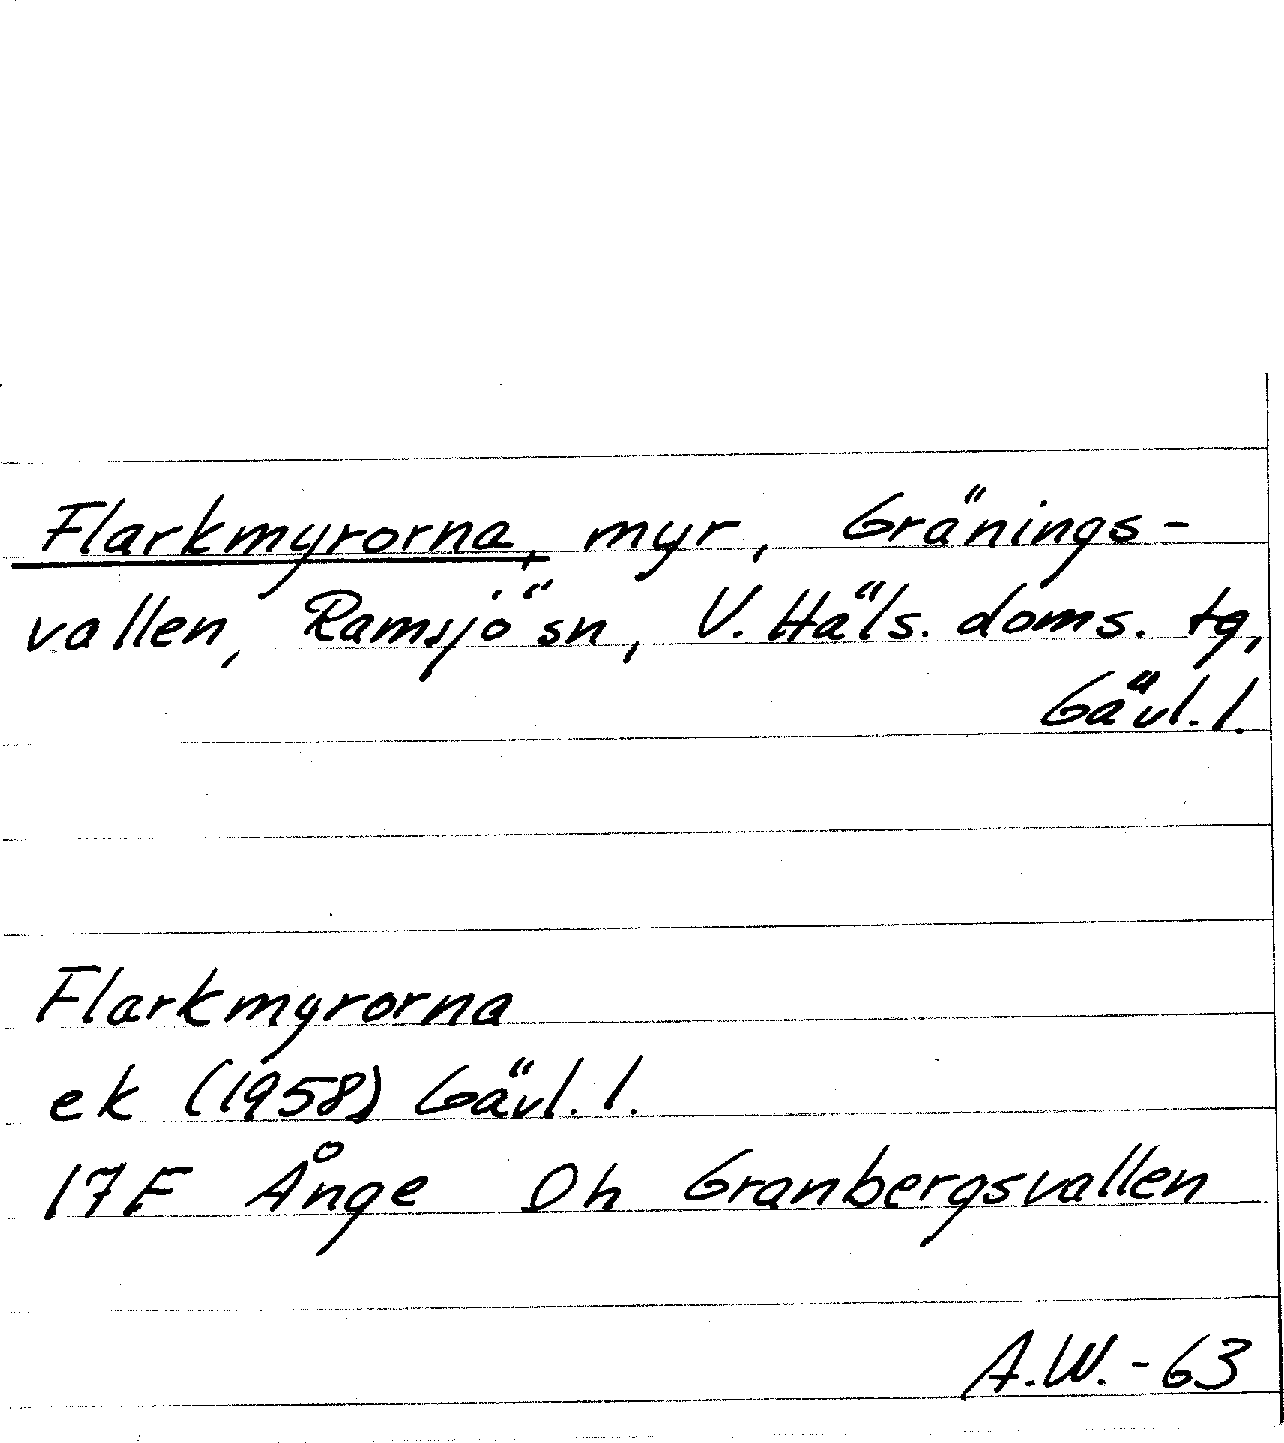 Flarkmyrorna, myr, Gränings-
vallen, Ramsjö sn, V. Häls. doms. tg,
Gävl. l.
Flarkmyrorna
ek (1958) Gävl. l.
17F Ånge 0h Granbergsvallen
A.W.-63